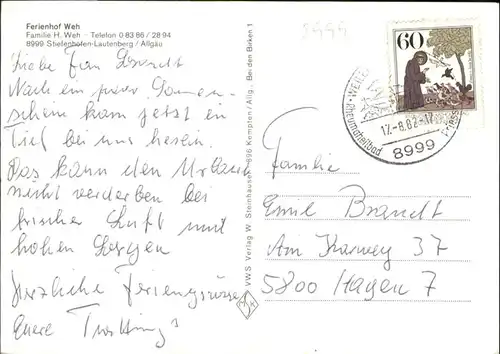 Ferienhof Weh
Familie H. Weh - Telefon 0 83 86 / 28 94
8999 Stiefenhofen-Lautenberg / Allgäu
8999
60
17.-8.82-17
8999
Liebe Frau Brandt
Nach ein paar Sonnen-
scheine kam jetzt ein
Tief bei uns herein.
Das kann den Urlaub
nicht verderben bei
frischer Luft und
hohen Bergen
Herzliche Feriengrüsse
Euere
VWS Verlag W. Steinhauser 8960 Kempten / Allg., Bei den Birken 1
Familie
Emil Brandt
Am 37
5800 Hagen 7